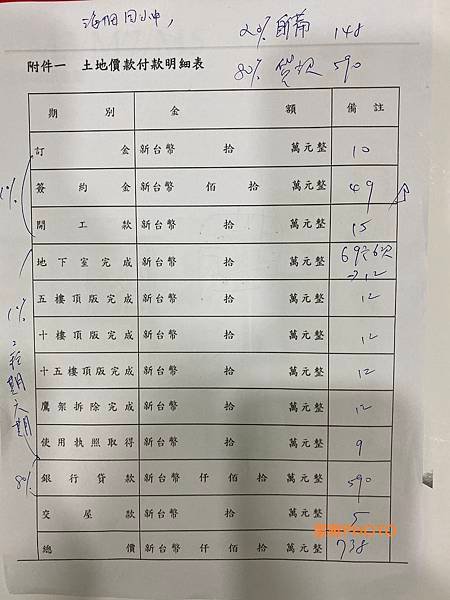 20% 自備 148
80% 貸款 590
附件一 土地價款付款明細表
期 別 金 額 備 註
訂 金 新台幣 拾 萬元整 10
簽 約 金 新台幣 佰 拾 萬元整 49
開 工 款 新台幣 拾 萬元整 15
地 下 室 完 成 新台幣 拾 萬元整 69÷6次
→12
五 樓 頂 版 完 成 新台幣 拾 萬元整 12
十 樓 頂 版 完 成 新台幣 拾 萬元整 12
十 五 樓 頂 版 完 成 新台幣 拾 萬元整 12
鷹 架 拆 除 完 成 新台幣 拾 萬元整 12
使 用 執 照 取 得 新台幣 拾 萬元整 9
80%
銀 行 貸 款 新台幣 仟 佰 拾 萬元整 590
交 屋 款 新台幣 拾 萬元整 5
總 價 新台幣 仟 佰 拾 萬元整 738